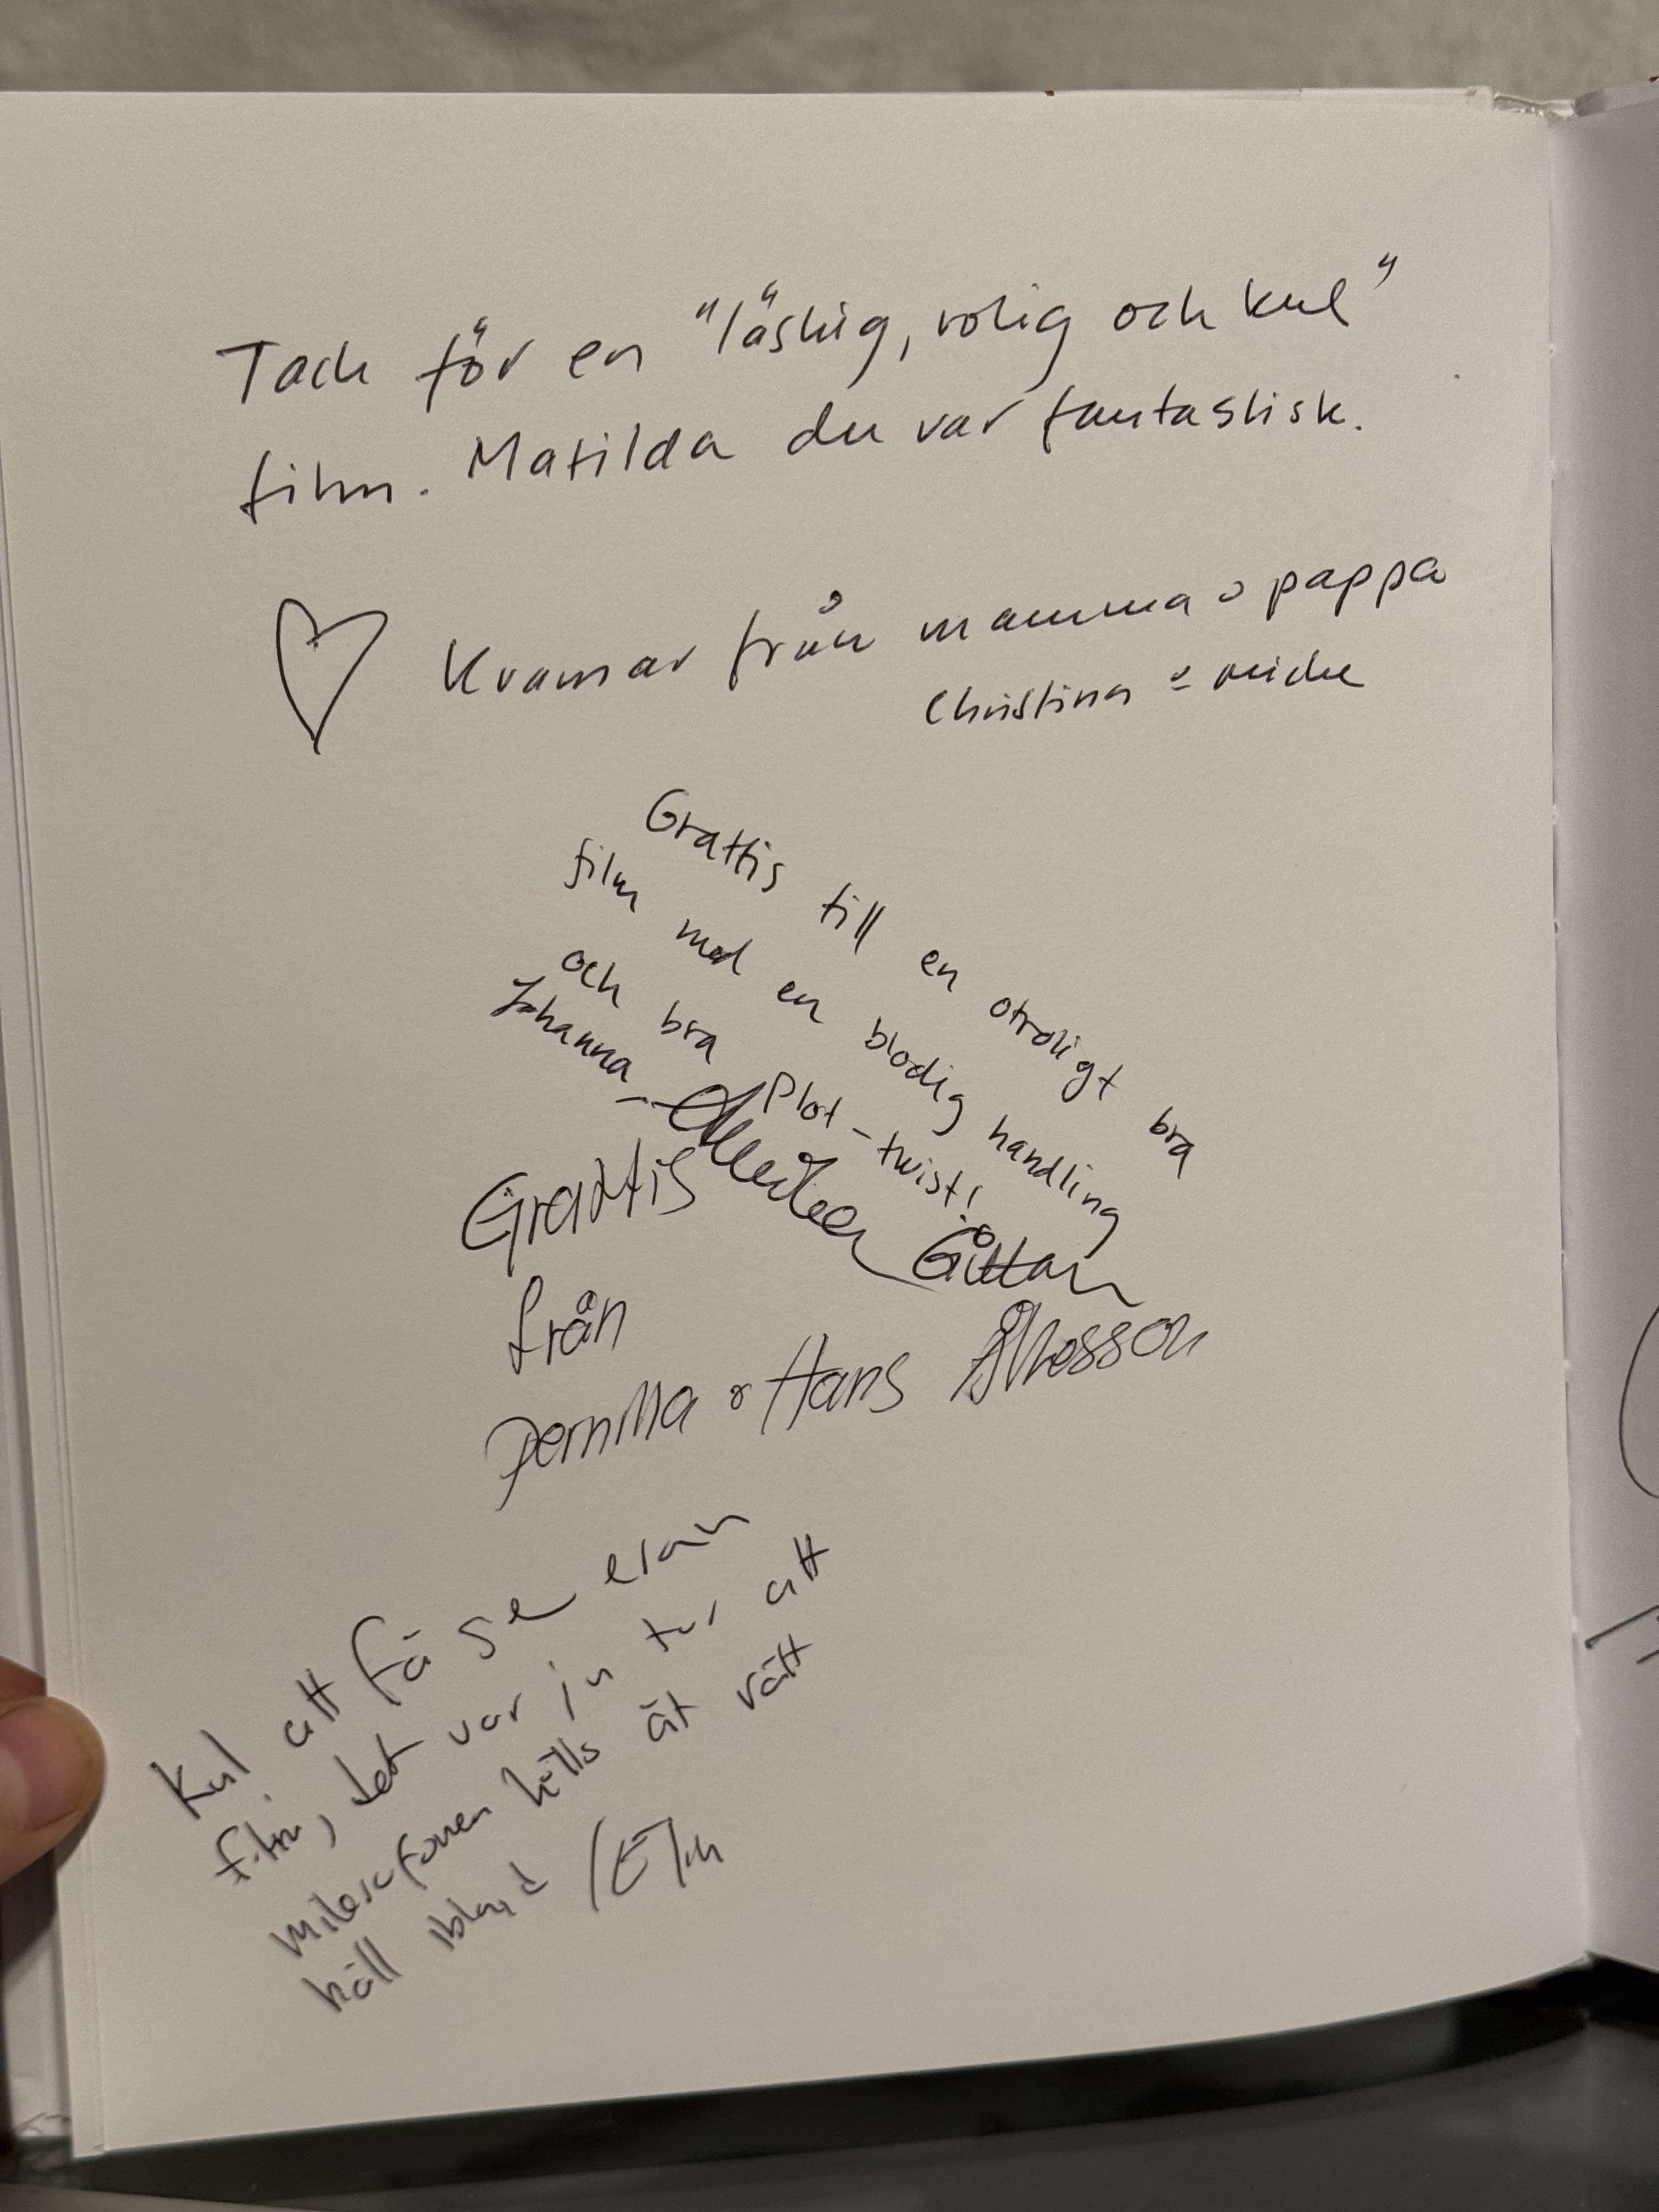 Tack för en "läskig, rolig och kul"
film. Matilda du var fantastisk.
Kramar från mamma o pappa
Christina o Micke
Grattis till en otroligt bra
film med en blodig handling
och bra Plot-twist!
Johanna
Grattis
från
Pernilla o Hans
Kul att få se eran
film, det var ju tur att
mikrofonen hålls åt rätt
håll ibland /Elin